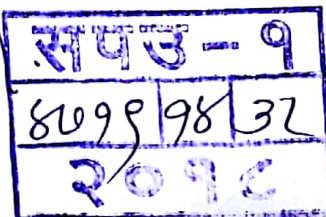 सपउ - १
४७१९ १४ ३२
२०१८